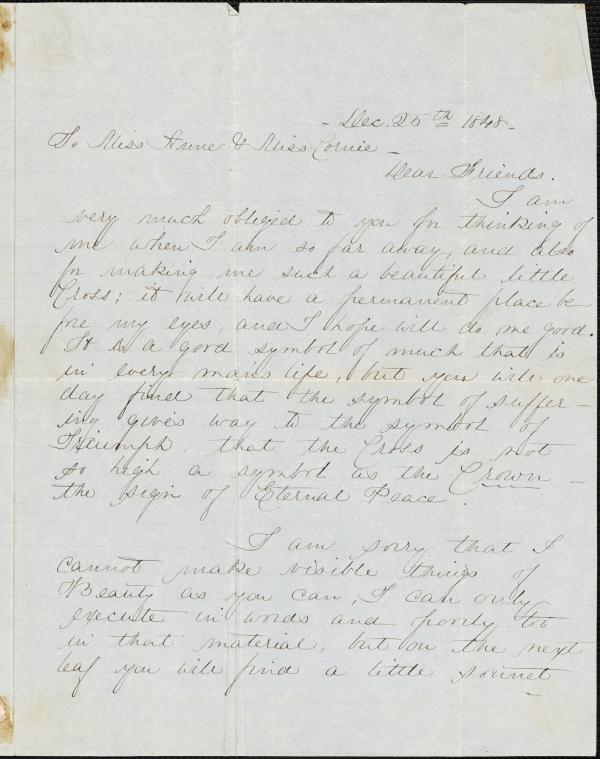 - Dec. 25th 1848 -
To Miss Anne & Miss Cornie -
Dear Friends.
I am
very much obliged to you for thinking of
me when I am so far away, and also
for making me such a beautiful little
Cross; it will have a permanent place be
fore my eyes, and I hope will do me good.
It is a good symbol of much that is
in every mans life, but you will one
day find that the symbol of suffer-
ing gives way to the symbol of
Triumph, that the Cross is not
so high a symbol as the Crown -
the sign of Eternal Peace.
I am sorry that I
cannot make visible things of
Beauty as you can, I can only
execute in words and poorly too
in that material, but on the next
leaf you will find a little sonnet